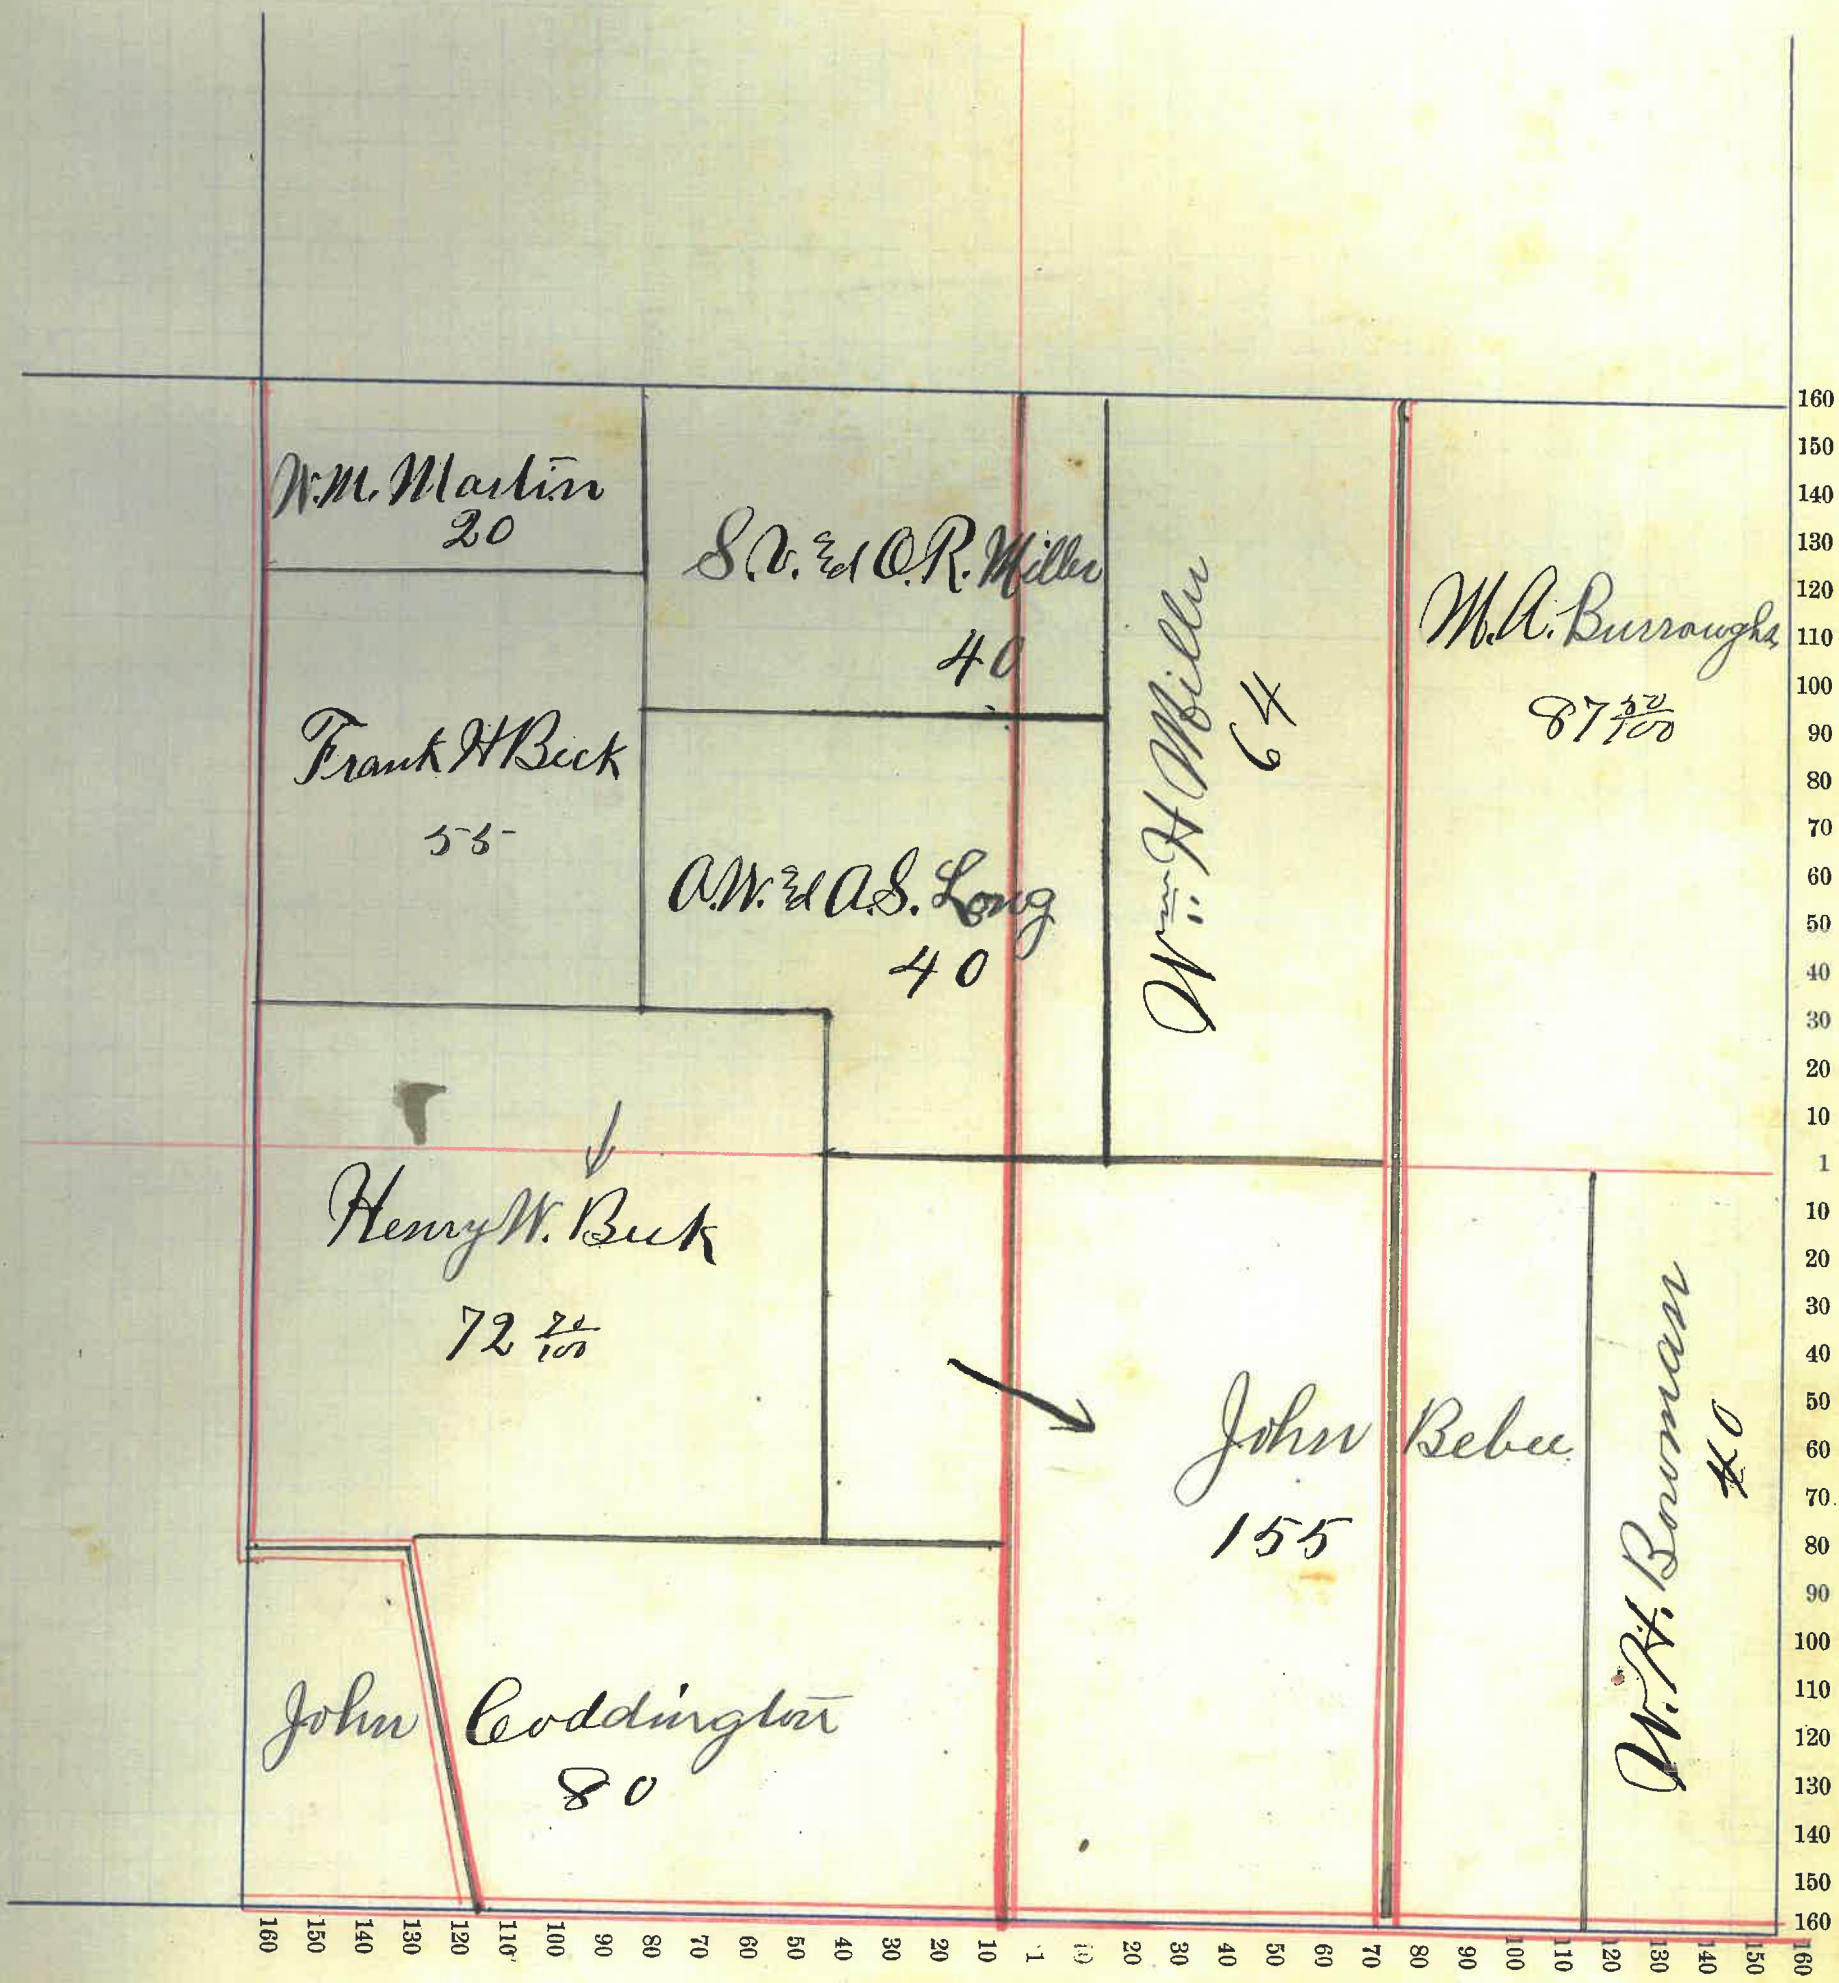 W.M. Martin
20
S.V. & O.R. Miller
40
Wm H Miller
64
M.A. Burroughs
87 50/100
Frank H Beck
55
A.W. & A.S. Long
40
Henry W. Beck
72 70/100
John Bebee
155
W.H. Bowman
40
John Coddington
80
160
150
140
130
120
110
100
90
80
70
60
50
40
30
20
10
1
10
20
30
40
50
60
70
80
90
100
110
120
130
140
150
160
160 150 140 130 120 110 100 90 80 70 60 50 40 30 20 10 1 10 20 30 40 50 60 70 80 90 100 110 120 130 140 150 160